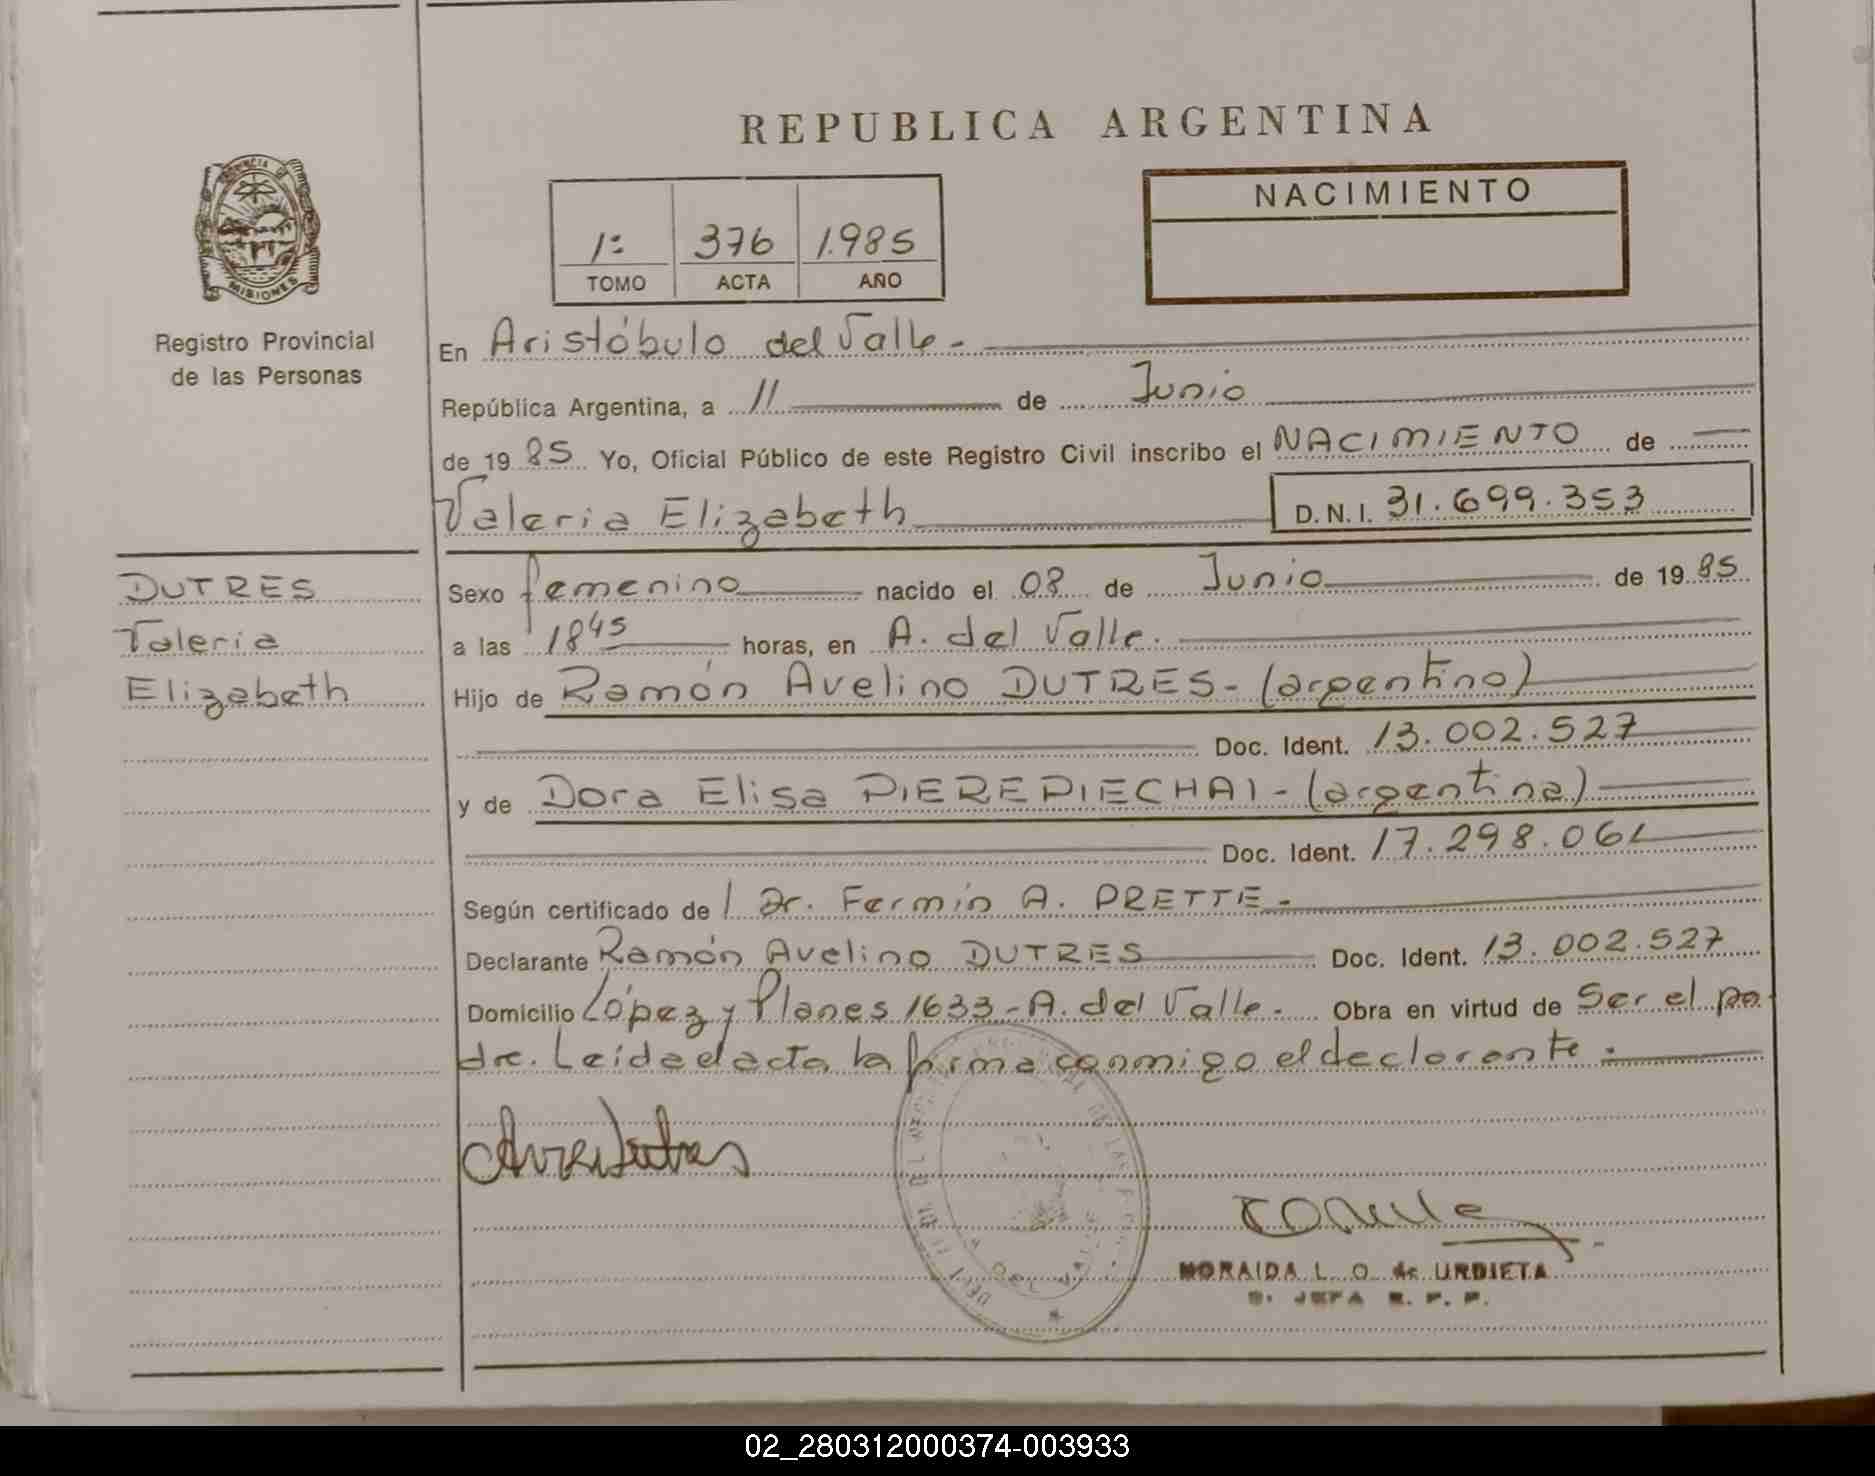 REPUBLICA ARGENTINA
PROVINCIA DE
MISIONES
Registro Provincial
de las Personas
1º 376 1.985
TOMO ACTA AÑO
NACIMIENTO
En Aristóbulo del Valle.-
República Argentina, a 11 de Junio
de 19 85 Yo, Oficial Público de este Registro Civil inscribo el NACIMIENTO de
Valeria Elizabeth D.N.I. 31.699.353
DUTRES
Valeria
Elizabeth
Sexo femenino nacido el 08 de Junio de 19 85
a las 1845 horas, en A. del Valle.
Hijo de Ramón Avelino DUTRES- (argentino)
Doc. Ident. 13.002.527
y de Dora Elisa PIEREPIECHAI- (argentina)
Doc. Ident. 17.298.061
Según certificado de l Dr. Fermín A. PRETTE.-
Declarante Ramón Avelino DUTRES Doc. Ident. 13.002.527
Domicilio López y Planes 1633-A. del Valle.- Obra en virtud de Ser el pa-
dre. Leída el acta la firma conmigo el declarante.-
NORAIDA L. O. de URDIETA
JEFA R. P. P.
02_280312000374-003933